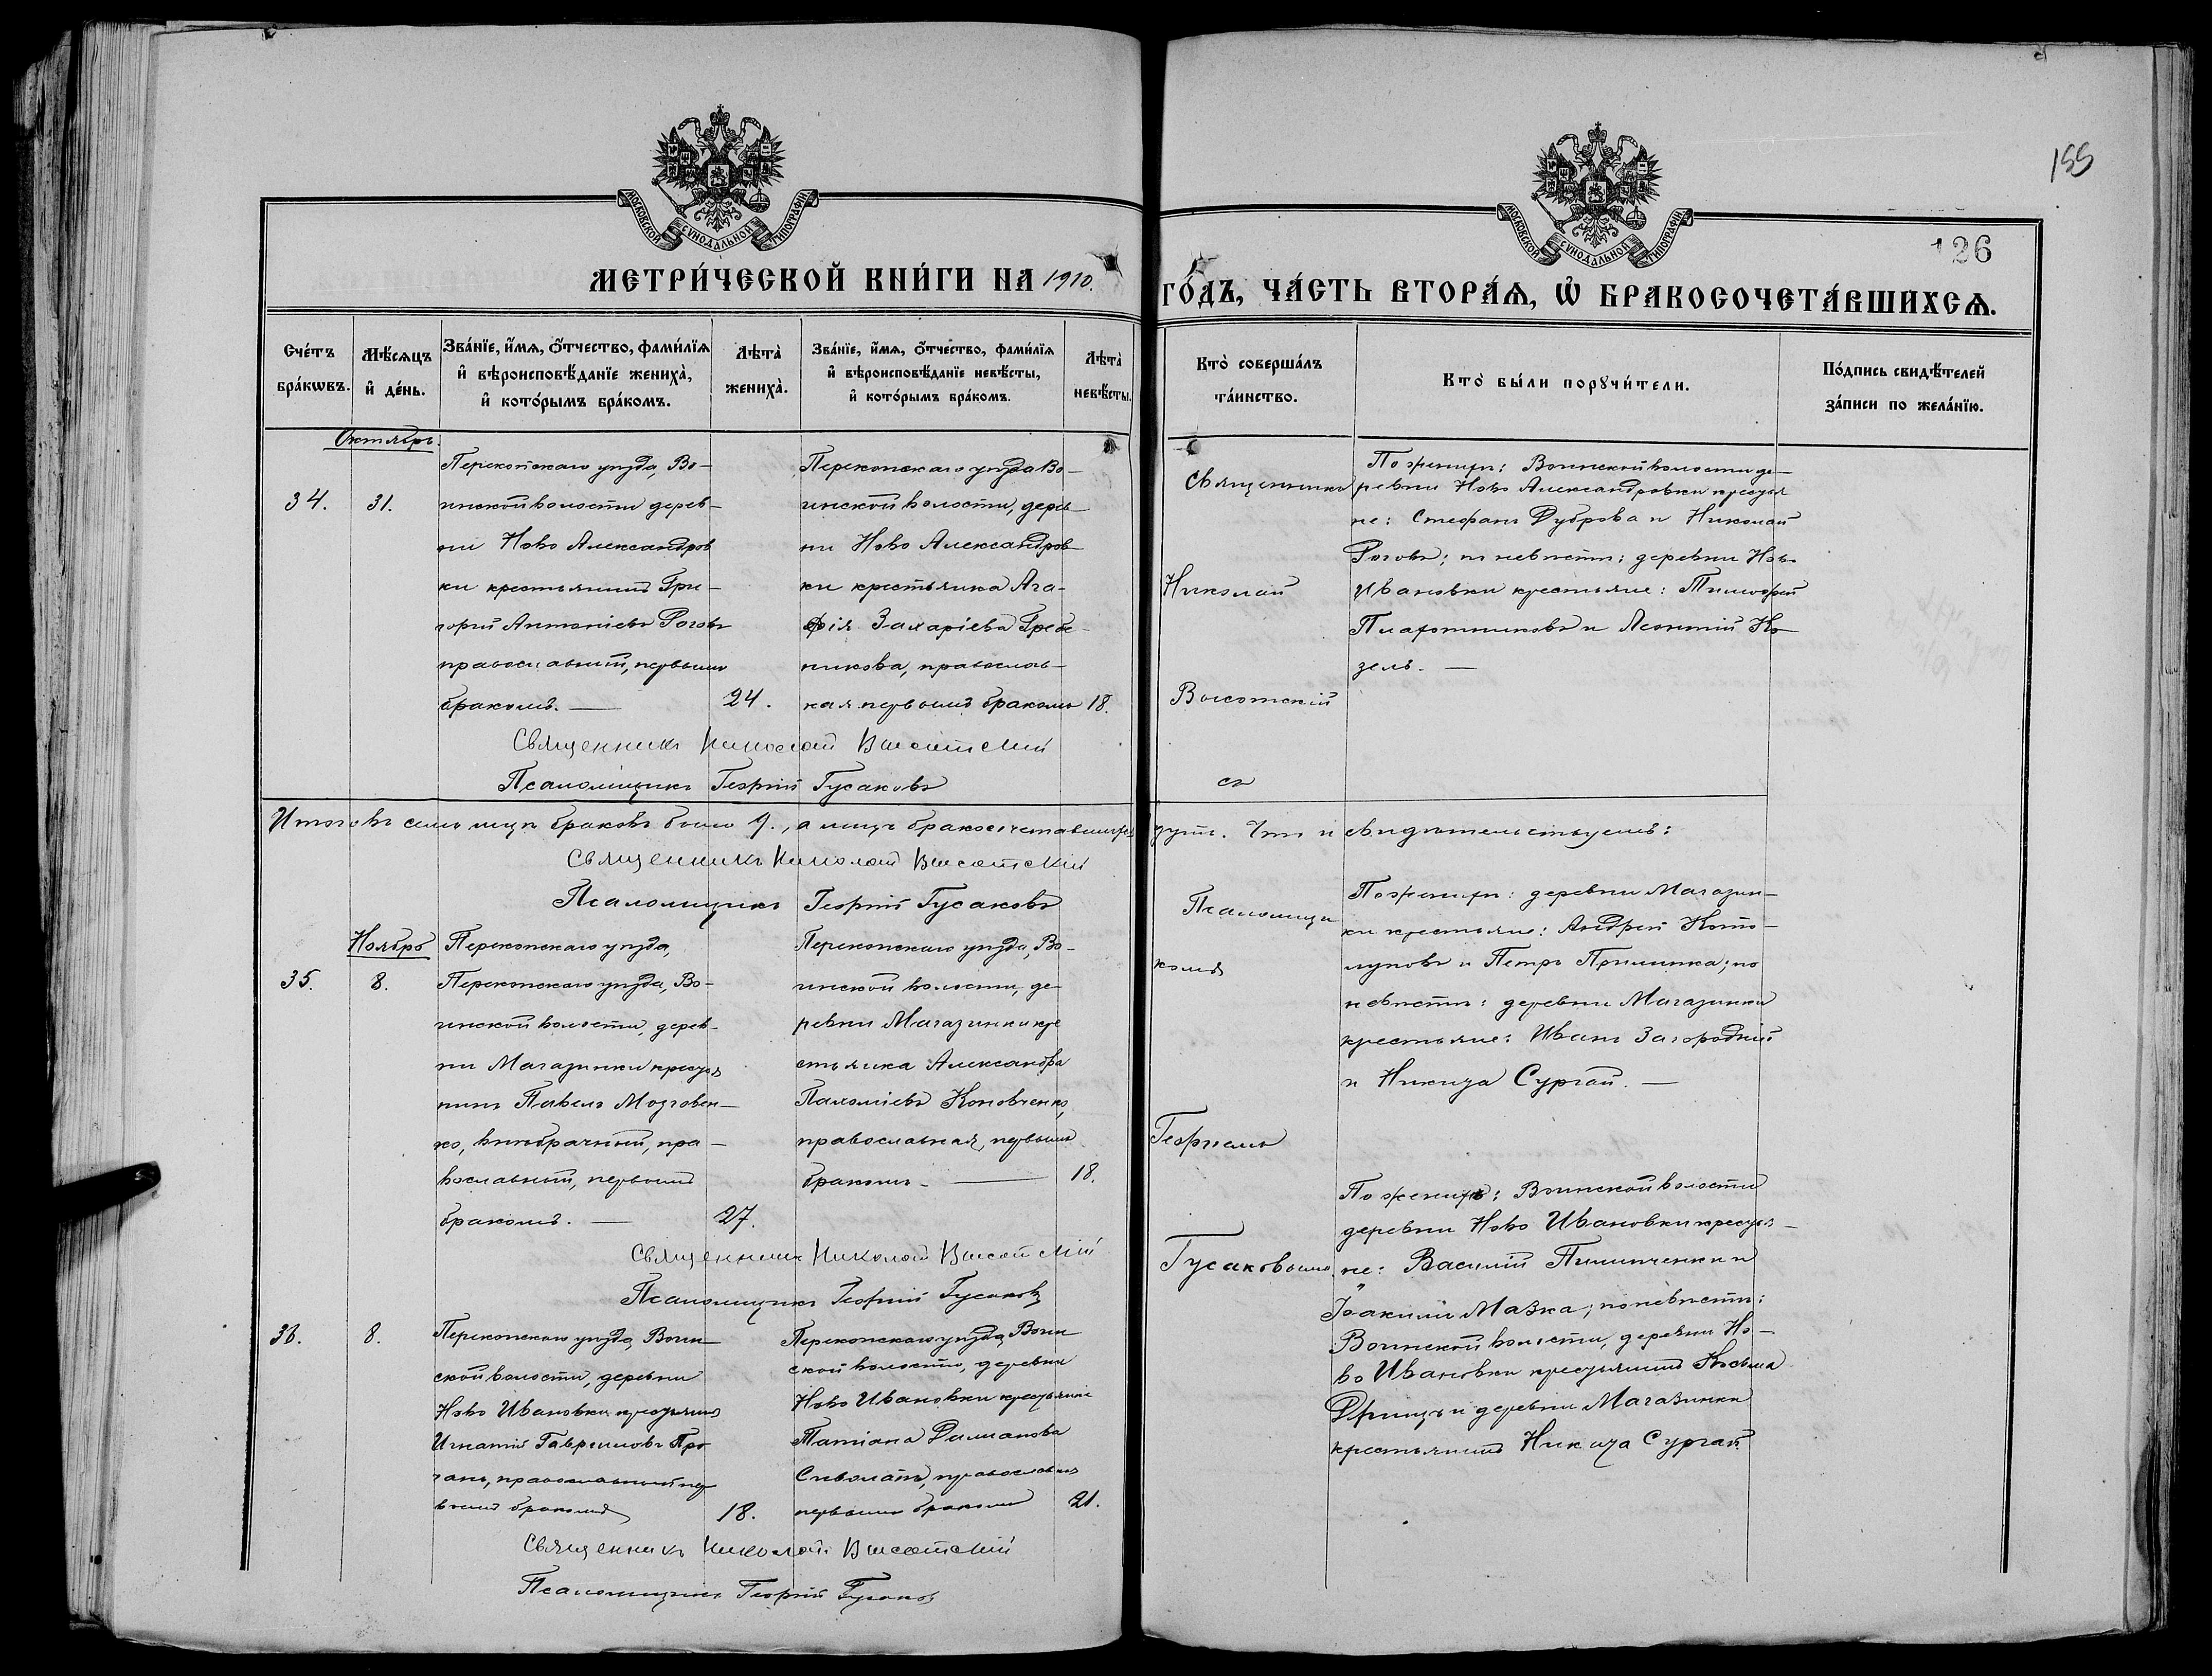 155
126
МОСКОВСКОЙ СѴНОДАЛЬНОЙ ТИПОГРАФІИ.
МОСКОВСКОЙ СѴНОДАЛЬНОЙ ТИПОГРАФІИ.
МЕТРИ́ЧЕСКОЙ КНИ́ГИ НА 1910.
ГО́ДЪ, ЧА́СТЬ ВТОРА́Ѧ, Ѽ БРАКОСОЧЕТА́ВШИХСѦ.
Сче́тъ
бра́кωвъ.
Мѣ́сѧцъ
и҆ де́нь.
Зва́нїе, и҆́мѧ, ѻ҆́тчество, фами́лїѧ
и҆ вѣроисповѣ́данїе жениха̀,
и҆ кото́рымъ бра́комъ.
Лѣта̀
жениха̀.
Зва́нїе, и҆́мѧ, ѻ҆́тчество, фами́лїѧ
и҆ вѣроисповѣ́данїе невѣ́сты,
и҆ кото́рымъ бра́комъ.
Лѣта̀
невѣ́сты.
Кто̀ соверша́лъ
та́инство.
Кто̀ бы́ли порꙋчи́тели.
По́дпись свидѣ́телей
за́писи по жела́нїю.
Октябрь.
34.
31.
Перекопскаго уѣзда, Во-
инской волости дерев-
ни Ново Александров
ки крестьянинъ Гри-
горій Антоніевъ Роговъ
православный, первымъ
бракомъ. —
24.
Перекопскаго уѣзда Во-
инской волости, дерев-
ни Ново Александров-
ки крестьянка Ага-
фія Захаріева Гребе-
никова, православ-
ная первымъ бракомъ
18.
Священникъ
Николай
Высотскій
съ
Псаломщи
комъ
Георгіемъ
Гусаковымъ.
По женихѣ: Воинской волости де-
ревни Ново Александровки крестья
не: Стефанъ Дуброва и Николай
Роговъ; по невѣстѣ: деревни Ново
Ивановки крестьяне: Тимофей
Плахотниковъ и Леонтій Ко-
зелъ. —
Священникъ Николай Высотскій
Псаломщикъ Георгій Гусаковъ
Итого въ семъ мѣс. браковъ было 9., а лицъ бракосочетавшихся
Что и свидѣтельствуемъ:
Священникъ Николай Высотскій
Псаломщикъ Георгій Гусаковъ
Ноябрь
35.
8.
Перекопскаго уѣзда,
Перекопскаго уѣзда, Во-
инской волости, дерев-
ни Магазинки крестья
нинъ Павелъ Мозговен-
ко, внѣбрачный, пра-
вославный, первымъ
бракомъ. —
27.
Перекопскаго уѣзда, Во-
инской волости, де-
ревни Магазинки кре
стьянка Александра
Пахоміева Коновченко,
православная, первымъ
бракомъ. —
18.
По женихѣ: деревни Магазин-
ки крестьяне: Андрей Кото-
луповъ и Петръ Прилипка; по
невѣстѣ: деревни Магазинки
крестьяне: Иванъ Загородній
и Никита Сургай. —
Священникъ Николай Высотскій
Псаломщикъ Георгій Гусаковъ
36.
8.
Перекопскаго уѣзда, Воин-
ской волости, деревни
Ново Ивановки крестьянинъ
Игнатій Гавриловъ Про
ганъ, православный пер
вымъ бракомъ
18.
Перекопскаго уѣзда, Воин
ской волости, деревни
Ново Ивановки крестьянка
Татіана Даміанова
Сиволапъ, православная
первымъ бракомъ
21.
По женихѣ: Воинской волости
деревни Ново Ивановки крестья-
не: Василій Пилипченко и
Іоакимъ Мазка; по невѣстѣ:
Воинской волости, деревни Но-
во Ивановки крестьянинъ Косьма
Дрищъ и деревни Магазинки
крестьянинъ Никита Сургай
Священникъ Николай Высотскій
Псаломщикъ Георгій Гусаковъ